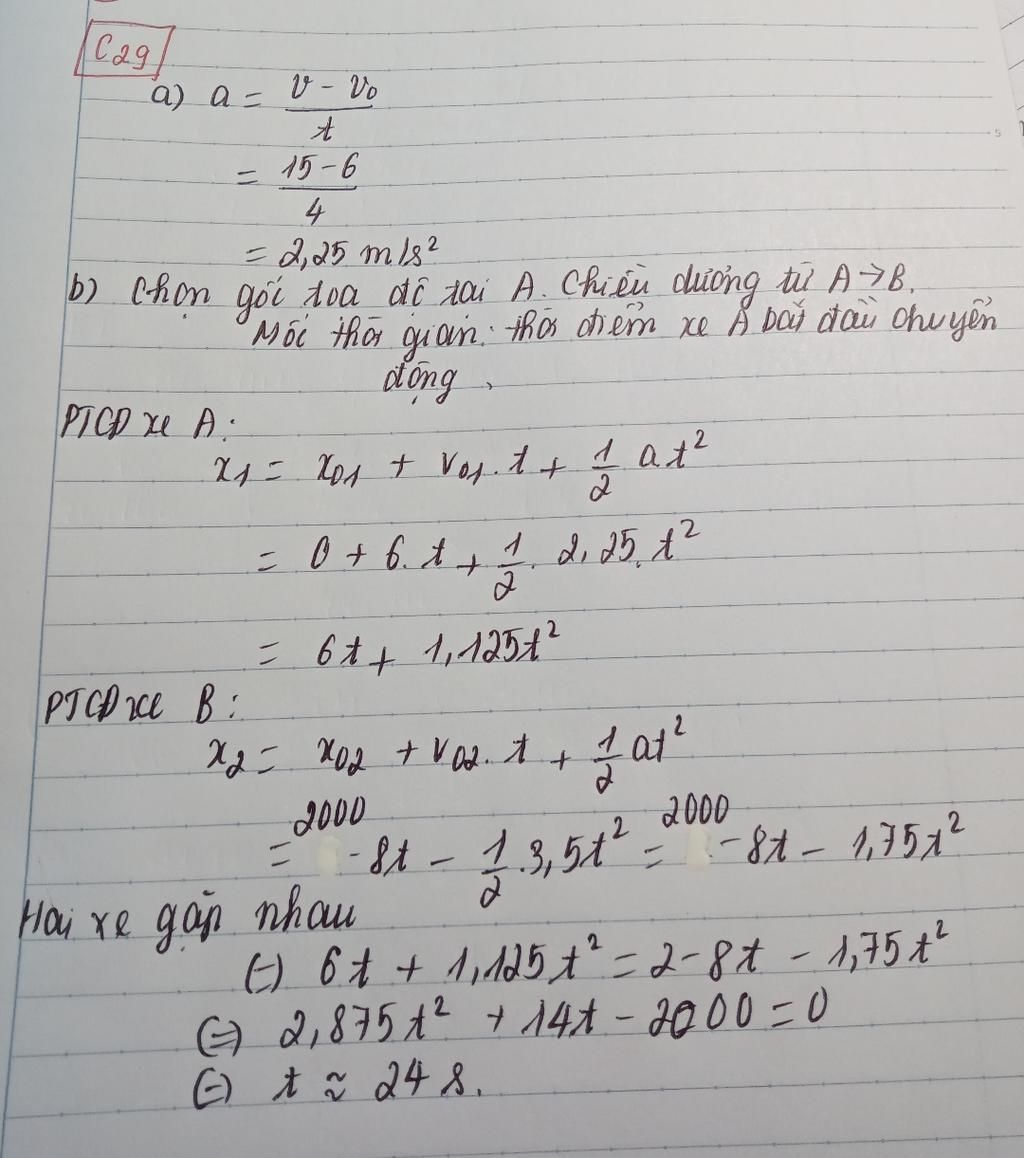 C29
a) a = (v - v₀)/t
= (15 - 6)/4
= 2,25 m/s²
b) Chọn gốc tọa độ tại A. Chiều dương từ A → B.
Mốc thời gian: thời điểm xe A bắt đầu chuyển
động.
PTCĐ xe A:
x₁ = x₀₁ + v₀₁.t + 1/2 at²
= 0 + 6.t + 1/2. 2,25.t²
= 6t + 1,125t²
PTCĐ xe B:
x₂ = x₀₂ + v₀₂.t + 1/2 at²
= 2000 - 8t - 1/2.3,5t² = 2000 - 8t - 1,75t²
Hai xe gặp nhau
(=) 6t + 1,125t² = 2 - 8t - 1,75t²
(=) 2,875t² + 14t - 2000 = 0
(=) t ≈ 24 s.